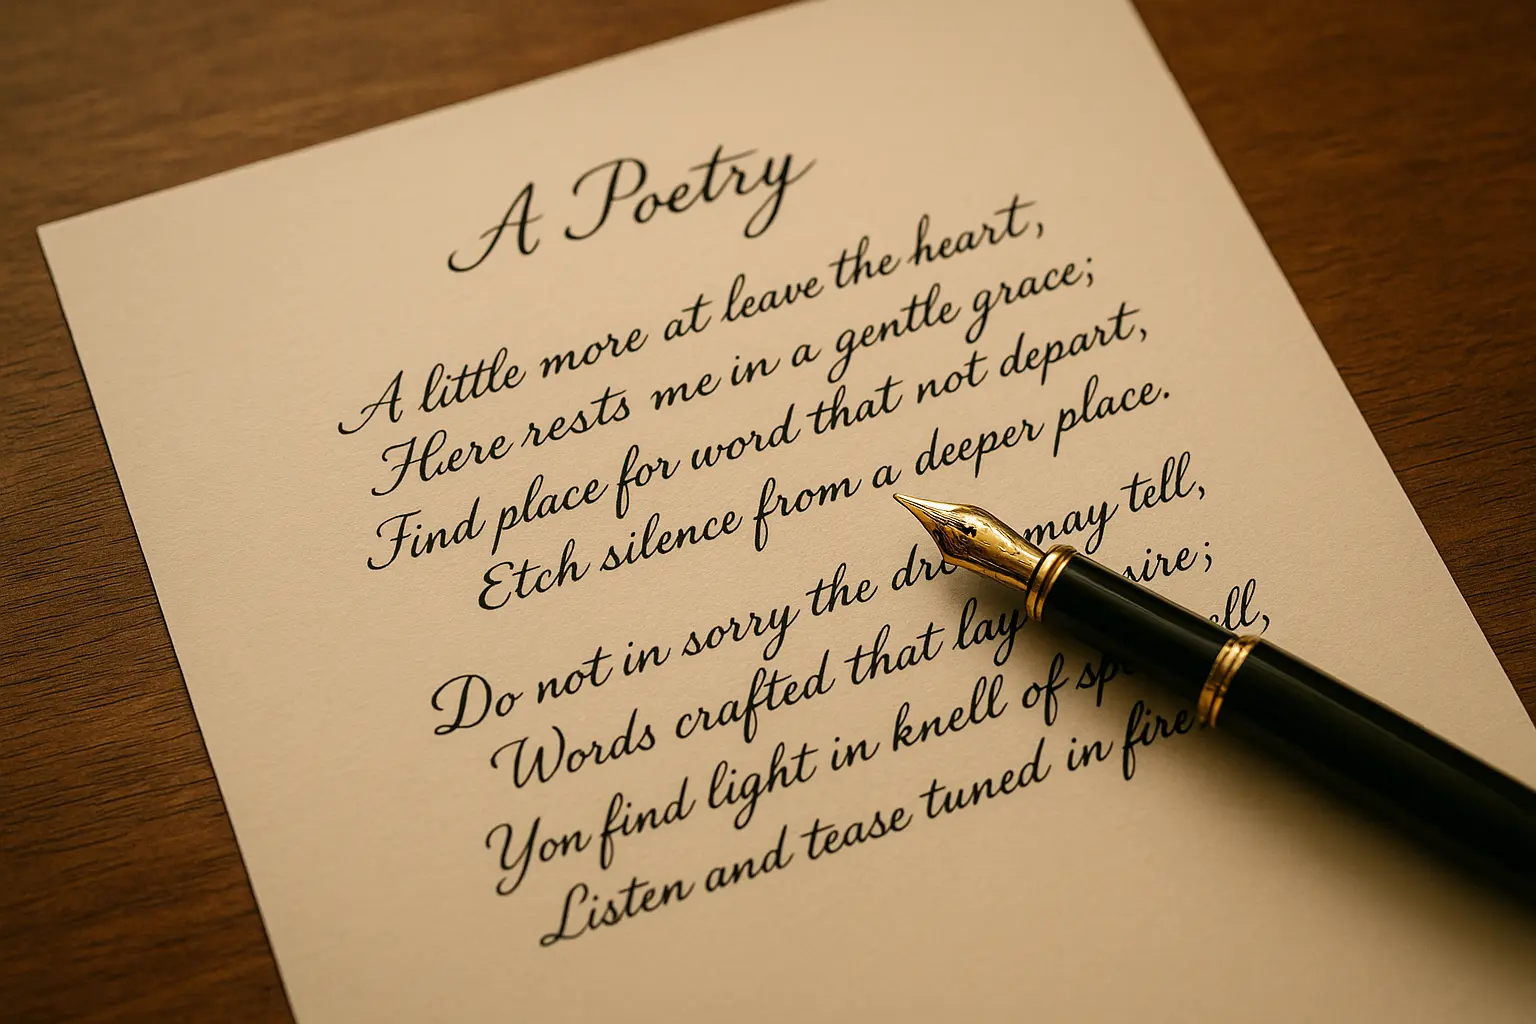 A Poetry
A little more at leave the heart,
Here rests me in a gentle grace;
Find place for word that not depart,
Etch silence from a deeper place.
Do not in sorry the may tell,
Words crafted that lay
Yon find light in knell of
Listen and tease tuned in fire